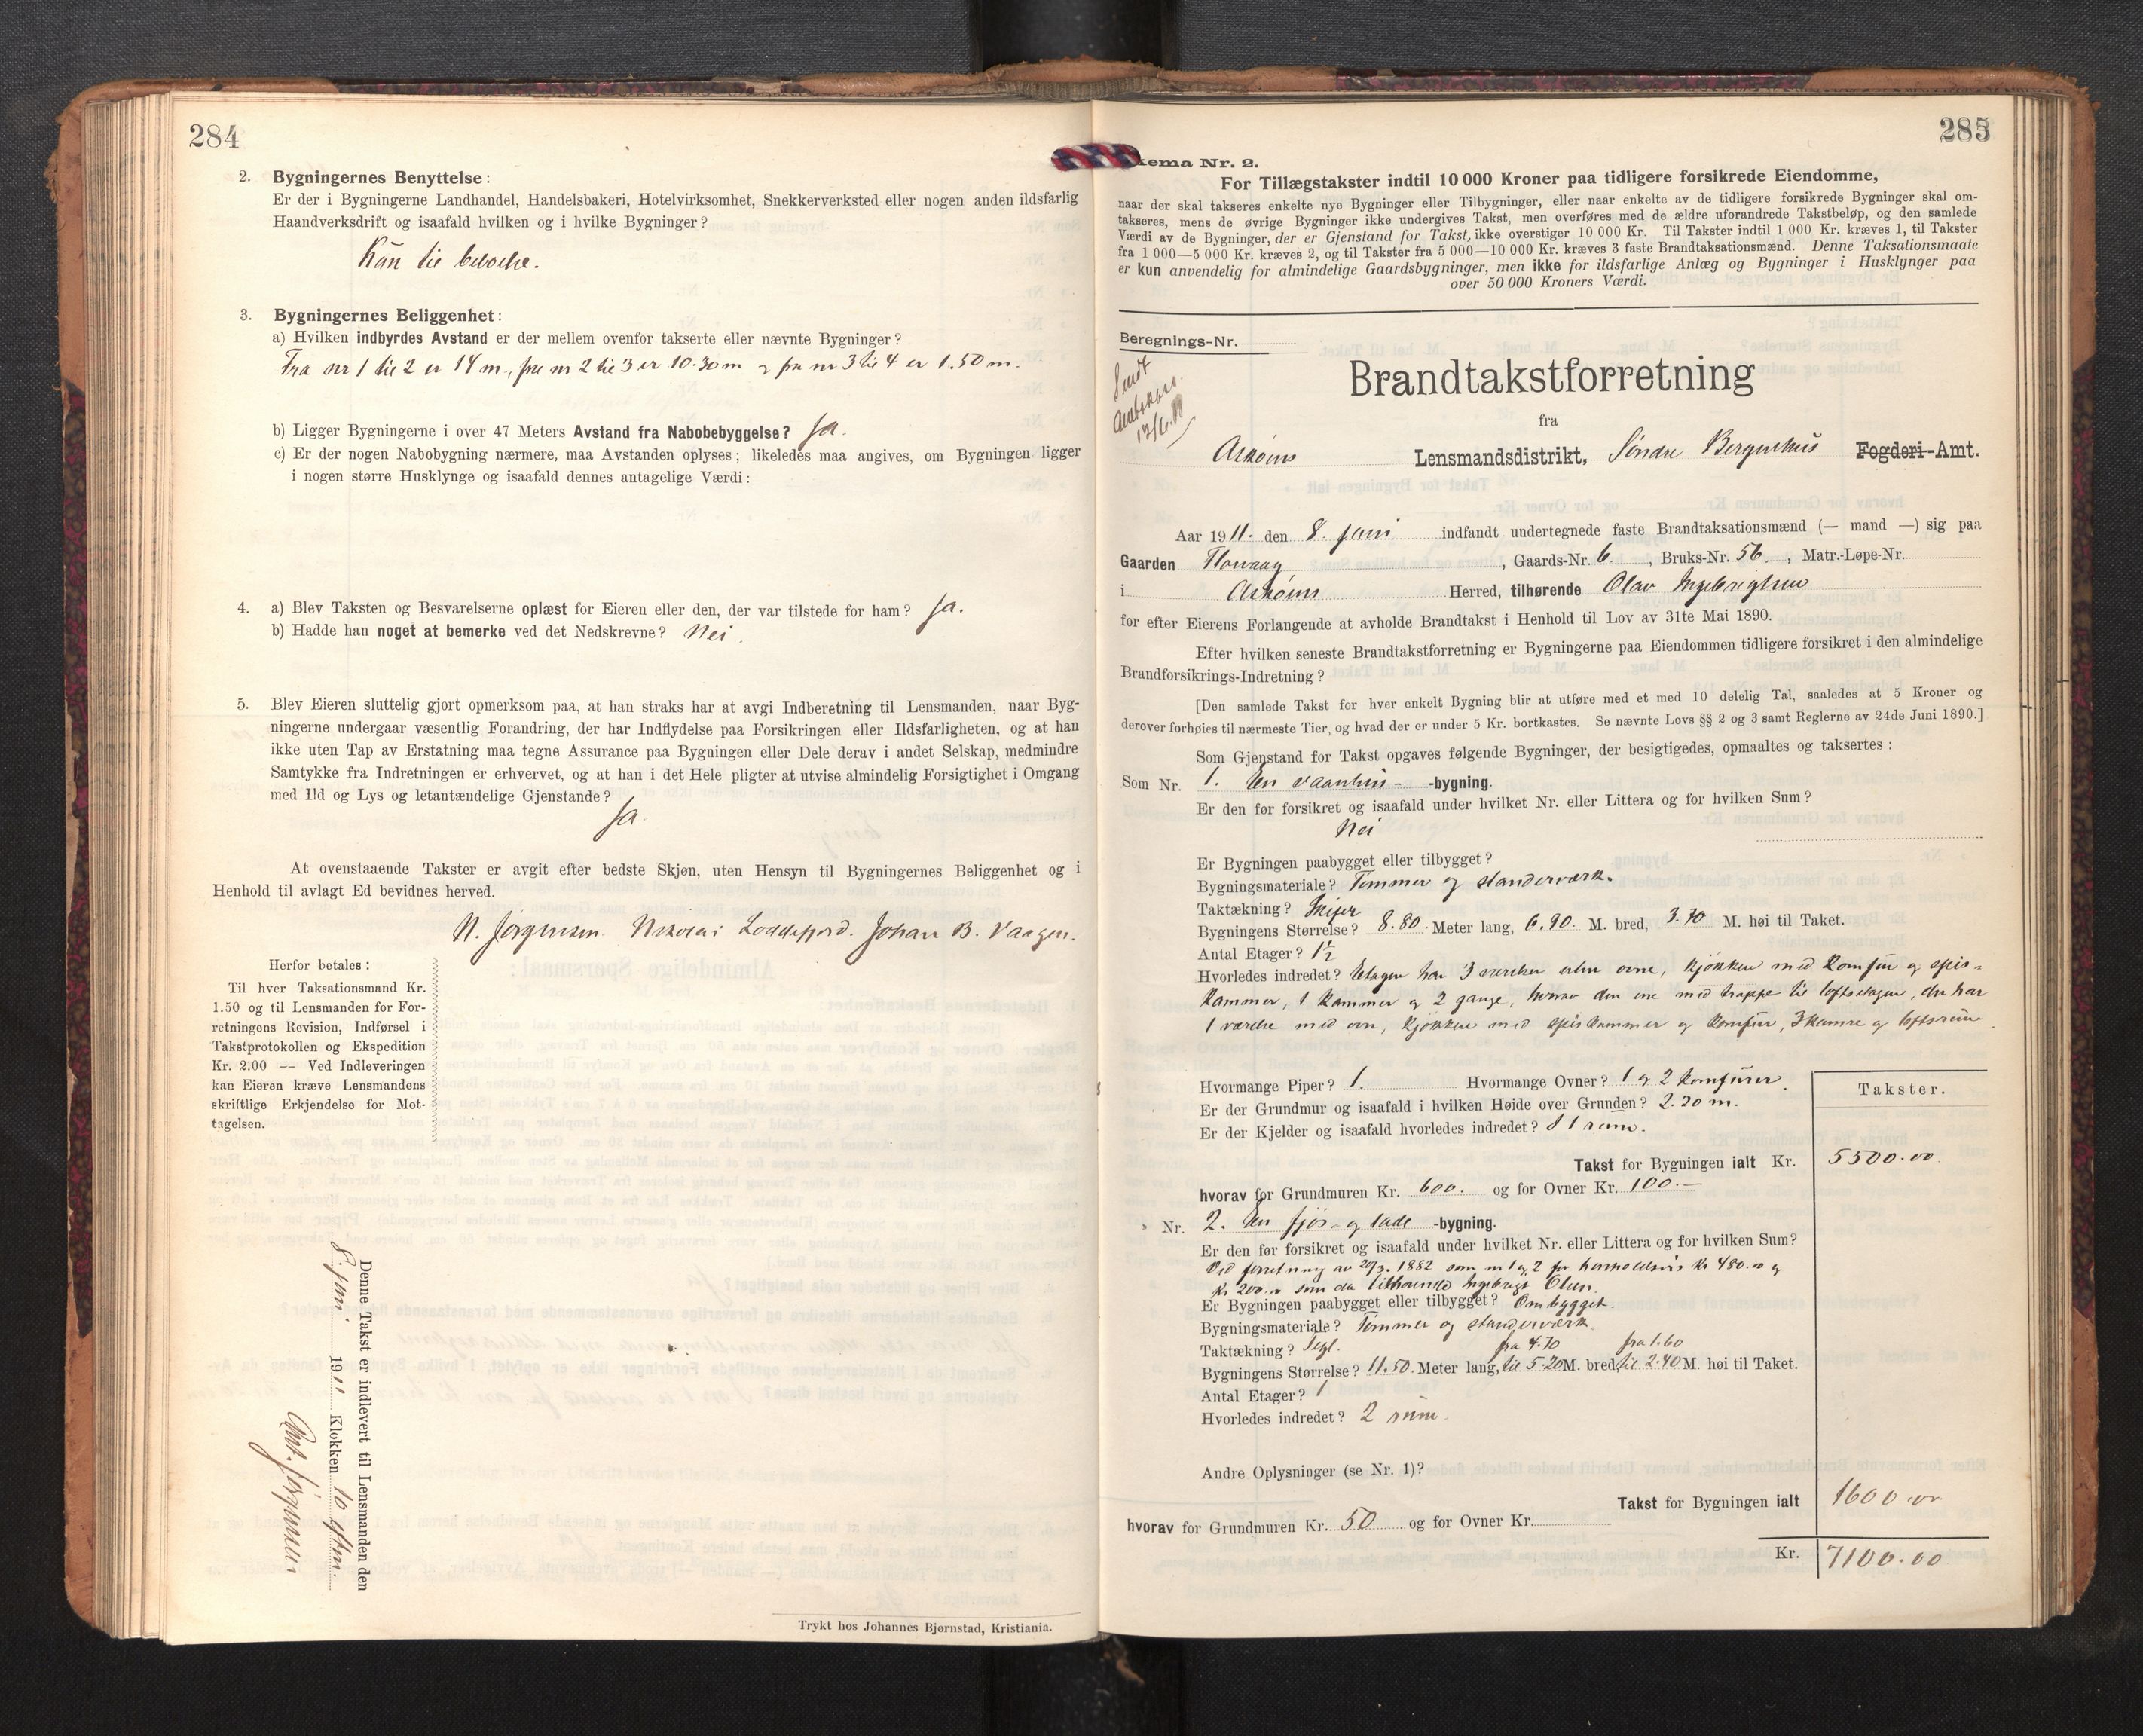 284
2. Bygningernes Benyttelse:
Er der i Bygningerne Landhandel, Handelsbakeri, Hotelvirksomhet, Snekkerverksted eller nogen anden ildsfarlig
Haandverksdrift og isaafald hvilken og i hvilke Bygninger?
Kun til beboelse.
3. Bygningernes Beliggenhet:
a) Hvilken indbyrdes Avstand er der mellem ovenfor takserte eller nævnte Bygninger?
Fra nr 1 til 2 er 14 m, fra nr 2 til 3 er 10.30 m og fra nr 3 til 4 er 1.50 m.
b) Ligger Bygningerne i over 47 Meters Avstand fra Nabobebyggelse? Ja.
c) Er der nogen Nabobygning nærmere, maa Avstanden oplyses; likeledes maa angives, om Bygningen ligger
i nogen større Husklynge og isaafald dennes antagelige Værdi:
4. a) Blev Taksten og Besvarelserne oplæst for Eieren eller den, der var tilstede for ham? Ja.
b) Hadde han noget at bemerke ved det Nedskrevne? Nei.
5. Blev Eieren sluttelig gjort opmerksom paa, at han straks har at avgi Indberetning til Lensmanden, naar Byg-
ningerne undergaar væsentlig Forandring, der har Indflydelse paa Forsikringen eller Ildsfarligheten, og at han
ikke uten Tap av Erstatning maa tegne Assurance paa Bygningen eller Dele derav i andet Selskap, medmindre
Samtykke fra Indretningen er erhvervet, og at han i det Hele pligter at utvise almindelig Forsigtighet i Omgang
med Ild og Lys og letantændelige Gjenstande?
Ja.
At ovenstaaende Takster er avgit efter bedste Skjøn, uten Hensyn til Bygningernes Beliggenhet og i
Henhold til avlagt Ed bevidnes herved.
N. Jørgensen. Nikolai Loddefjord. Johan B. Vaagen.
Herfor betales:
Til hver Taksationsmand Kr.
1.50 og til Lensmanden for For-
retningens Revision, Indførsel i
Takstprotokollen og Ekspedition
Kr. 2.00 — Ved Indleveringen
kan Eieren kræve Lensmandens
skriftlige Erkjendelse for Mot-
tagelsen.
Denne Takst er indlevert til Lensmanden den
8 juni 1911 Klokken 10 eftm.
Ant. Jörgensen
Trykt hos Johannes Bjørnstad, Kristiania.
285
kema Nr. 2.
For Tillægstakster indtil 10 000 Kroner paa tidligere forsikrede Eiendomme,
naar der skal takseres enkelte nye Bygninger eller Tilbygninger, eller naar enkelte av de tidligere forsikrede Bygninger skal om-
takseres, mens de øvrige Bygninger ikke undergives Takst, men overføres med de ældre uforandrede Takstbeløp, og den samlede
Værdi av de Bygninger, der er Gjenstand for Takst, ikke overstiger 10 000 Kr. Til Takster indtil 1 000 Kr. kræves 1, til Takster
fra 1 000—5 000 Kr. kræves 2, og til Takster fra 5 000—10 000 Kr. kræves 3 faste Brandtaksationsmænd. Denne Taksationsmaate
er kun anvendelig for almindelige Gaardsbygninger, men ikke for ildsfarlige Anlæg og Bygninger i Husklynger paa
over 50 000 Kroners Værdi.
Beregnings-Nr.
Sendt
12/6.11
Brandtakstforretning
fra
Askøens Lensmandsdistrikt, Søndre Bergenhus Fogderi-Amt.
Aar 1911. den 8. juni indfandt undertegnede faste Brandtaksationsmænd (— mand —) sig paa
Gaarden Florvaag, Gaards-Nr. 6, Bruks-Nr. 56, Matr.-Løpe-Nr.
i Askøens Herred, tilhørende Olav Ingebrigtsen
for efter Eierens Forlangende at avholde Brandtakst i Henhold til Lov av 31te Mai 1890.
Efter hvilken seneste Brandtakstforretning er Bygningerne paa Eiendommen tidligere forsikret i den almindelige
Brandforsikrings-Indretning?
[Den samlede Takst for hver enkelt Bygning blir at utføre med et med 10 delelig Tal, saaledes at 5 Kroner og
derover forhøies til nærmeste Tier, og hvad der er under 5 Kr. bortkastes. Se nævnte Lovs §§ 2 og 3 samt Reglerne av 24de Juni 1890.]
Som Gjenstand for Takst opgaves følgende Bygninger, der besigtigedes, opmaaltes og taksertes:
Som Nr. 1. En vaanhus- -bygning.
Er den før forsikret og isaafald under hvilket Nr. eller Littera og for hvilken Sum?
Nei
Er Bygningen paabygget eller tilbygget?
Bygningsmateriale? Tømmer og standerværk.
Taktækning? Skifer
Bygningens Størrelse? 8.80. Meter lang, 6.90. M. bred, 3.70 M. høi til Taket.
Antal Etager? 1½
Hvorledes indredet? Etagen har 3 værelser uten ovne, kjøkken med komfur og spis-
kammer, 1 kammer og 2 gange, hvorav den ene med trappe til loftsetagen, der har
1 værelse med ovn, kjøkken med spiskammer og komfur, 3 kamre og loftsrum
Hvormange Piper? 1. Hvormange Ovner? 1 og 2 komfurer.
Er der Grundmur og isaafald i hvilken Høide over Grunden? 2.20 m.
Er der Kjelder og isaafald hvorledes indredet? I 1 rum.
Takster.
Takst for Bygningen ialt Kr. 5500.00
hvorav for Grundmuren Kr. 600. og for Ovner Kr. 100.—
" Nr. 2. En fjøs- og lade -bygning.
Er den før forsikret og isaafald under hvilket Nr. eller Littera og for hvilken Sum?
Ved forretning av 20/3. 1882 som nr 1 og 2 for henholdsvis kr 480.00 og
kr 200.00 som da tilhørende Ingebrigt Olsen.
Er Bygningen paabygget eller tilbygget? Ombygget.
Bygningsmateriale? Tømmer og standerværk.
Taktækning? Tegl. fra 4.70 fra 1.60
Bygningens Størrelse? 11.50. Meter lang, til 5.20 M. bred, til 2.40 M. høi til Taket.
Antal Etager? 1
Hvorledes indredet? 2 rum.
Andre Oplysninger (se Nr. 1)?
Takst for Bygningen ialt 1600.00
hvorav for Grundmuren Kr. 50 og for Ovner Kr.
Kr. 7100.00